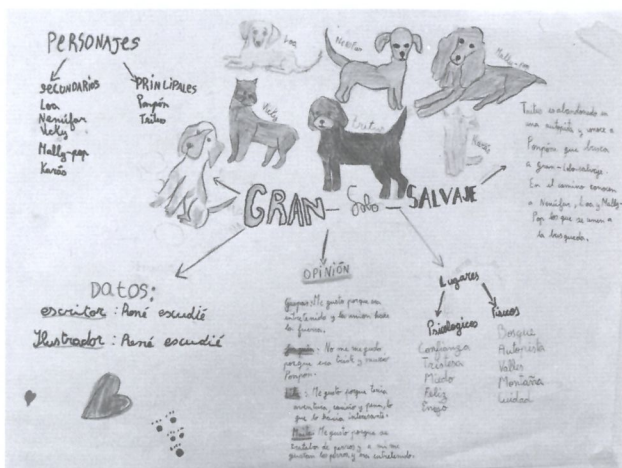 PERSONAJES
SECUNDARIOS
Loa
Nemúfar
Vicky
Mally-pop
Karás
PRINCIPALES
Pompón
Tritus
Loa
Mally-pop
Tritus es abandonado en
una autopista y conoce a
Pompón que busca
a gran-lobo-salvaje.
En el camino conocen
a Nemúfar, Loa y Mally-
Pop los que se unen a
la busqueda.
GRAN-Lobo-SALVAJE
DATOS:
escritor : René escudié
Ilustrador : René escudié
OPINIÓN
Me gusto porque era
entretenido y la unión hace
la fuerza.
- No me gusto
porque era triste y
Pompón.
: Me gusto porque tenía
aventura, cariño y pena, lo
que lo hacía interesante.
Me gusto porque se
trataba de perros y a mi me
gustan los perros y era entretenido.
Lugares
Psicologicos
Confianza
Tristesa
Miedo
Feliz
Enojo
Fisicos
Bosque
Autopista
Valles
Montaña
Ciudad